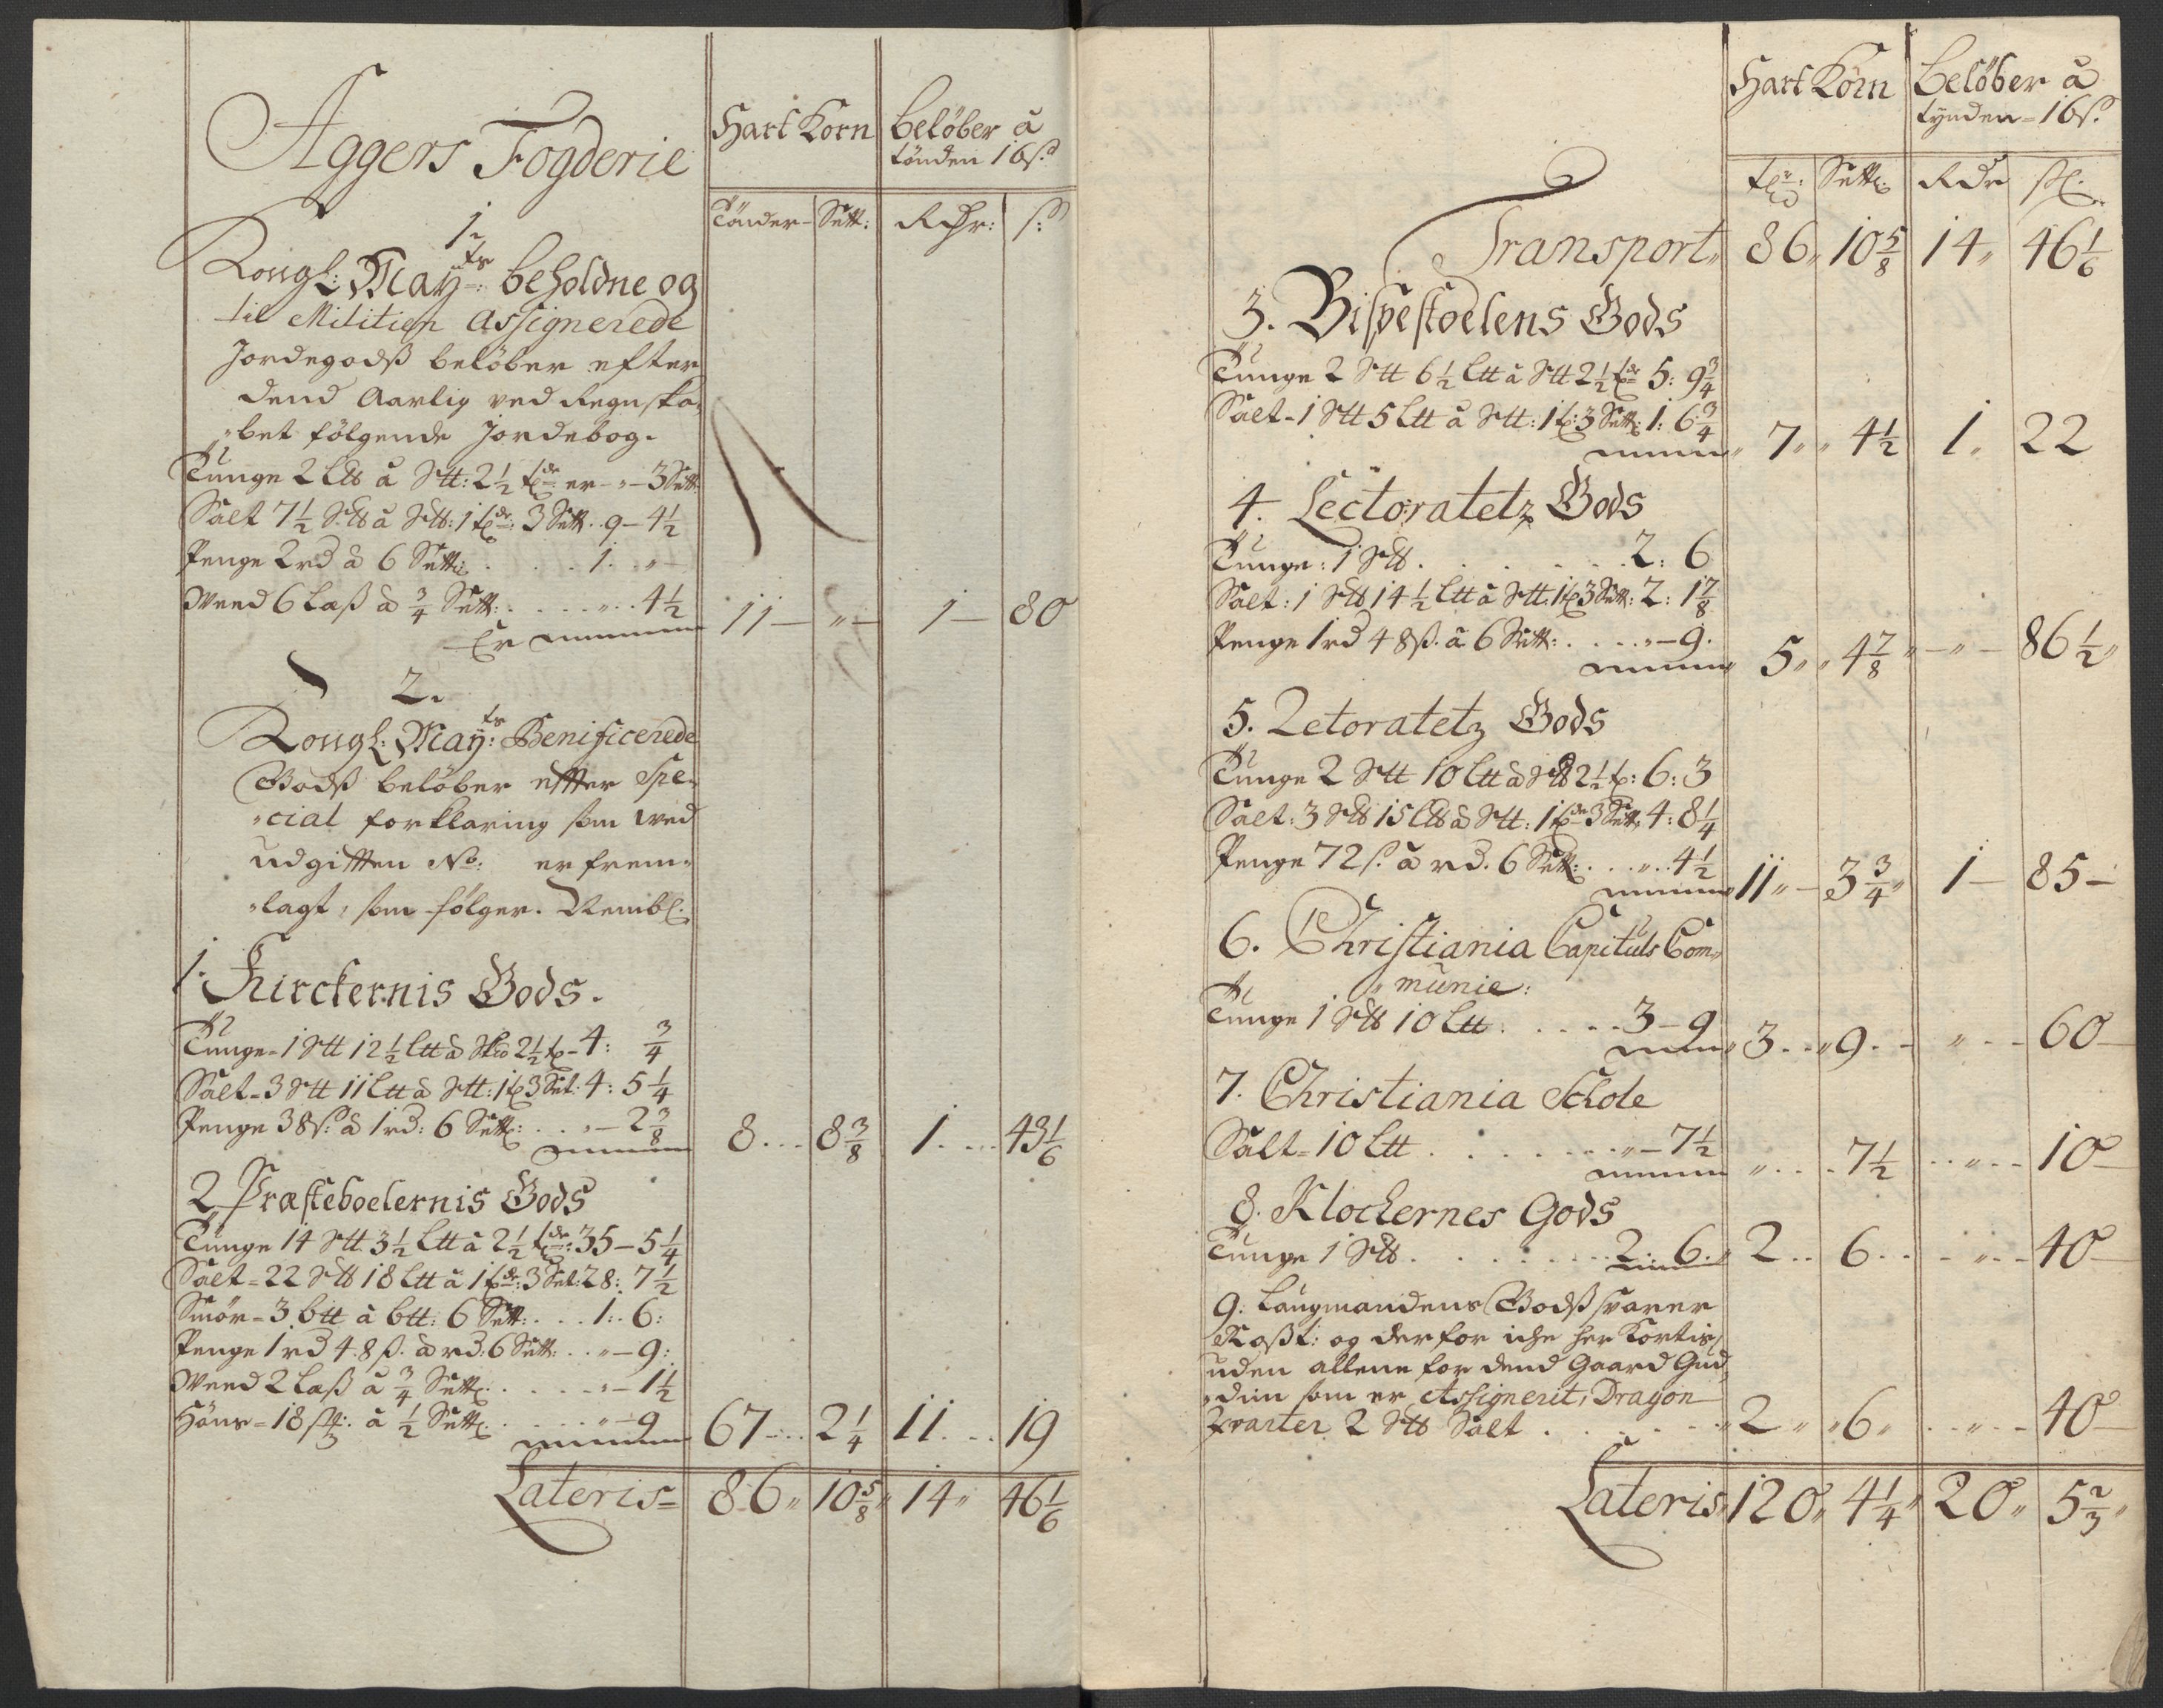 Aggers Fogderie
Hart Korn
beløber å
tønden 16 s.
Tönder - Sett:
Rdr: s:
1.
Kongl: May:ts beholdne og
til Militien assignerede
Jordegodß beløber efter
dend Aarlig ved Regnska-
"bet følgende Jordebog.
Tunge 2 Ltt å Stt: 2½ td er - " - 3 Sett
Salt 7½ Stt å Stt: 1 td: 3 Sett. 9 - 4½
Penge 2 rd å 6 Sett: . . . 1. "
Weed 6 Laß å ¾ Sett: . . . . " . . 4½
Er 11 - " - 1 - 80
2.
Kongl: May:ts Benificerede
Godß beløber effter Spe-
"cial forklaring som wed
udgifften No: er frem-
"lagt, som følger. Nembl:
1. Kirckernis Gods.
Tunge - 1 Stt 12½ Ltt å 2½ t - 4: ¾
Salt - 3 Stt 11 Ltt å Stt: 1 t 3 Set. 4: 5¼
Penge 38 s: å 1 rd: 6 Sett: . . " - 2⅜
8 . . . 8⅜ 1 . . . 43⅙
2. Præsteboelernis Gods
Tunge 14 Stt. 3½ Ltt å 2½ td: 35 - 5¼
Salt - 22 Stt 18 Ltt å 1 td: 3 Set: 28: 7½
Smör - 3 btt å btt: 6 Sett: . . . 1 : 6:
Penge 1 rd 48 ß. å rd: 6 Sett: . . " - 9:
Weed 2 Laß å ¾ Sett: . . . . . " - 1½
Höns - 18 st: å ½ Sett: . . . . " - 9
67 - . . 2¼ 11 . . . 19
Lateris - 86 " 10⅝ " 14 " 46⅙
Hart Korn
beløber å
tynden - 16 s.
td: Sett:
Rdr ß:
Transport 86 " 10⅝ 14 " 46⅙
3. Bispestoelens Gods
Tunge 2 Stt 6½ Ltt å Stt 2½ td 5: 9¾
Salt - 1 Stt 5 Ltt å Stt: 1 t: 3 Sett: 1: 6¾
7 " " 4½ 1 " 22
4. Lectoratetz Gods
Tunge: 1 Stt . . . . . . . 2: 6
Salt: 1 Stt 14½ Ltt å Stt: 1 t 3 Sett: 2: 1⅞
Penge 1 rd 48 ß. å 6 Sett: . . . . " - 9.
5 " " 4⅞ " - " - 86½ "
5. Letoratetz Gods
Tunge 2 Stt 10 Ltt å Stt 2½ t: 6: 3
Salt: 3 Stt 15 Ltt å Stt: 1 td 3 Sett: 4: 8¼
Penge 72 s. å rd. 6 Sett: . . . " . . 4½
11 " - 3¾ " 1 - 85 -
6. Christiania Capituls Com-
"munie:
Tunge 1 Stt 10 Ltt . . . . . 3 - 9
3 . . " 9 . - " . - 60 -
7. Christiania Schole
Salt - 10 Ltt . . . . . . . . " - 7½
" . . . 7½ . . " . . 10 -
8. Klockernes Gods
Tunge 1 Stt . . . . . . . 2 : 6. " 2 . . 6 . . . " . . 40 -
9. Laugmandens Godß svarer
Roßt: og derfor iche her kortis,
uden allene for dend Gaard Gud-
"dim som er Assignerit, Dragon
Qvarter 2 Stt Salt . . . . . . " 2 " " 6 " . . " . . 40 -
Lateris " 120 " 4¼ " 20 " 5⅔ "